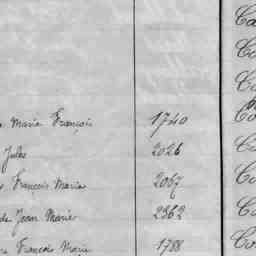 Marie François 1740 Co
Jules 2026 Co
François Marie 2067 Co
de Jean Marie 2362 Co
François Marie 1788 Co